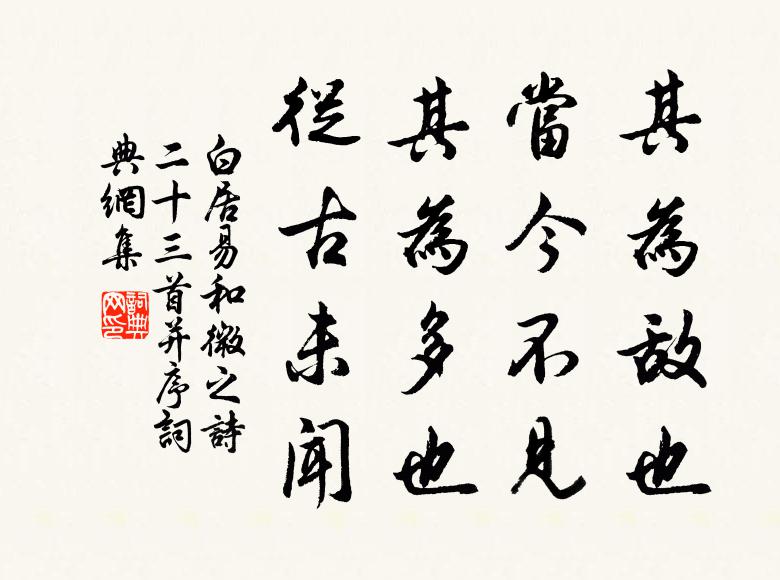 其為敌也
當今不見
其為多也
從古未聞
白居易和微之詩
二十三首并序詞
典網集
詞典
网印